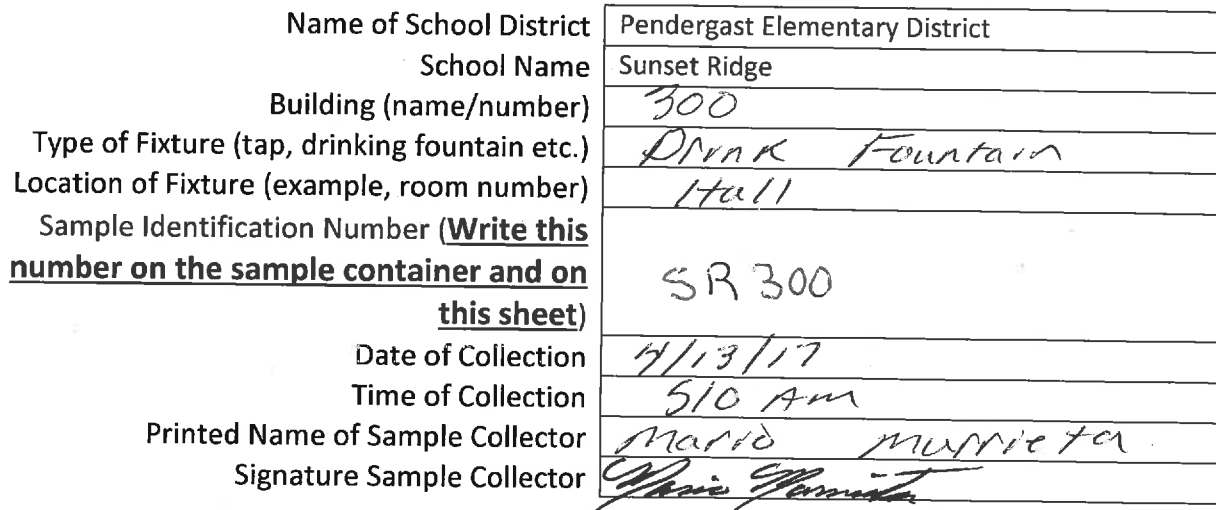 Name of School District Pendergast Elementary District
School Name Sunset Ridge
Building (name/number) 300
Type of Fixture (tap, drinking fountain etc.) Drink Fountain
Location of Fixture (example, room number) Hall
Sample Identification Number (Write this
number on the sample container and on
this sheet) SR 300
Date of Collection 4/13/17
Time of Collection 510 Am
Printed Name of Sample Collector Mario Murrieta
Signature Sample Collector Mario Murrieta